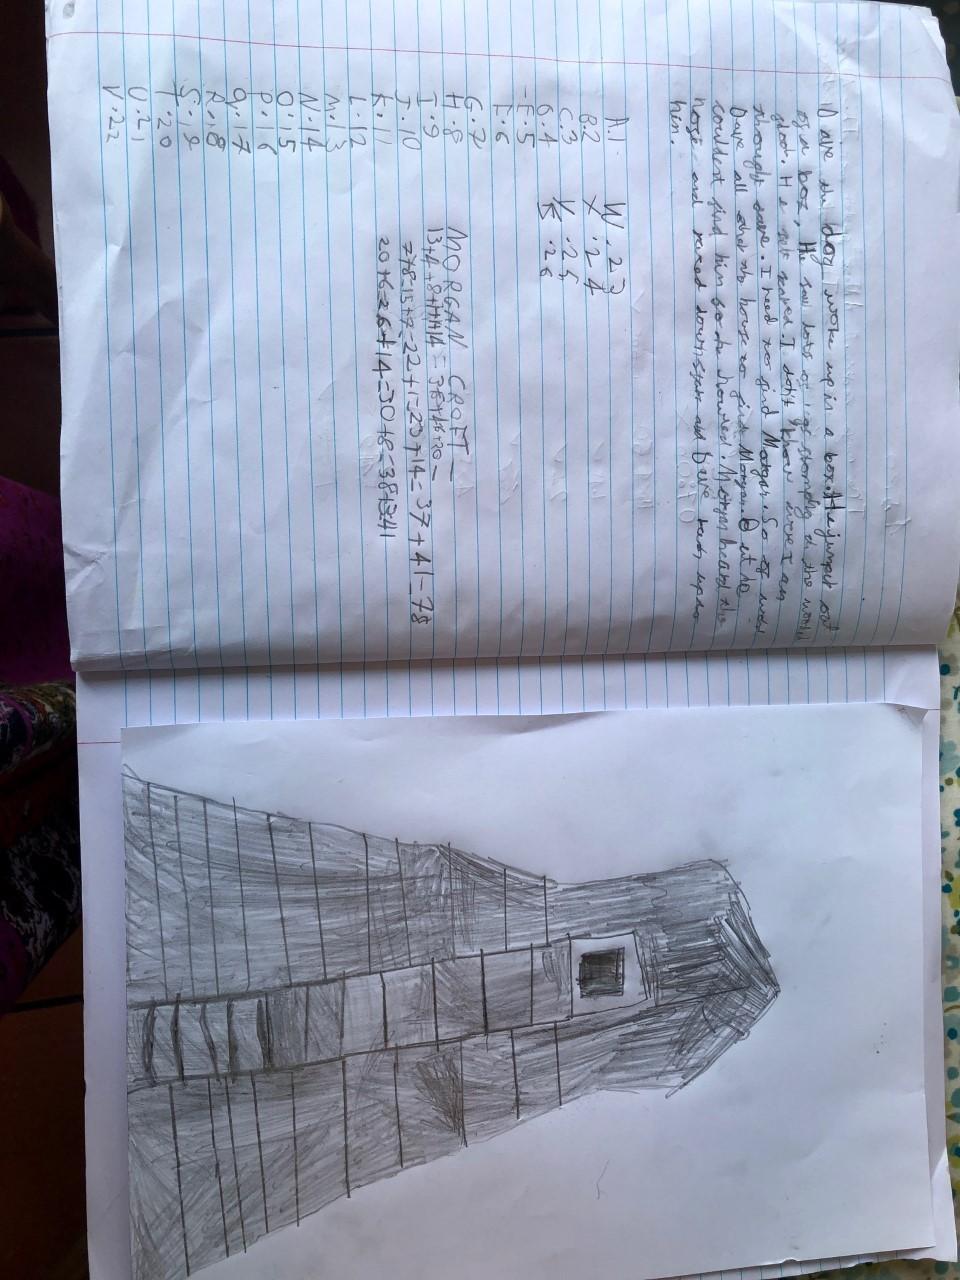 Dave the dog woke up in a box. He jumpet out
of a box, He saw lots of
door. He got scared. I don't know were I am
thought dave. I need to find Morgan. So
Dave all over the house to find Morgan. But he
couldent find him so he howled. Morgan heard the
noise and raced downstairs and Dave up to
him.
A.1
B.2
C.3
D.4
E.5
F.6
G.7
H.8
I.9
J.10
K.11
L.12
M.13
N.14
O.15
P.16
Q.17
R.18
S.19
T.20
U.21
V.22
W.23
X.24
Y.25
Z.26
MORGAN CROFT -
7+8=15+7=22+1=23+14=37+41=78
20+6=26+14=30+8=38+3=41